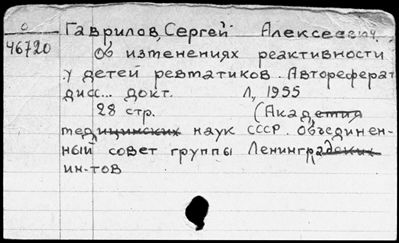 0 Гаврилов, Сергей Алексеевич.
46720 Об изменениях реактивности
у детей ревматиков. Автореферат
дисс... докт. Л, 1955
28 стр. (Академия
медицинских наук СССР. Объединен-
ный совет группы Ленинградских
ин-тов